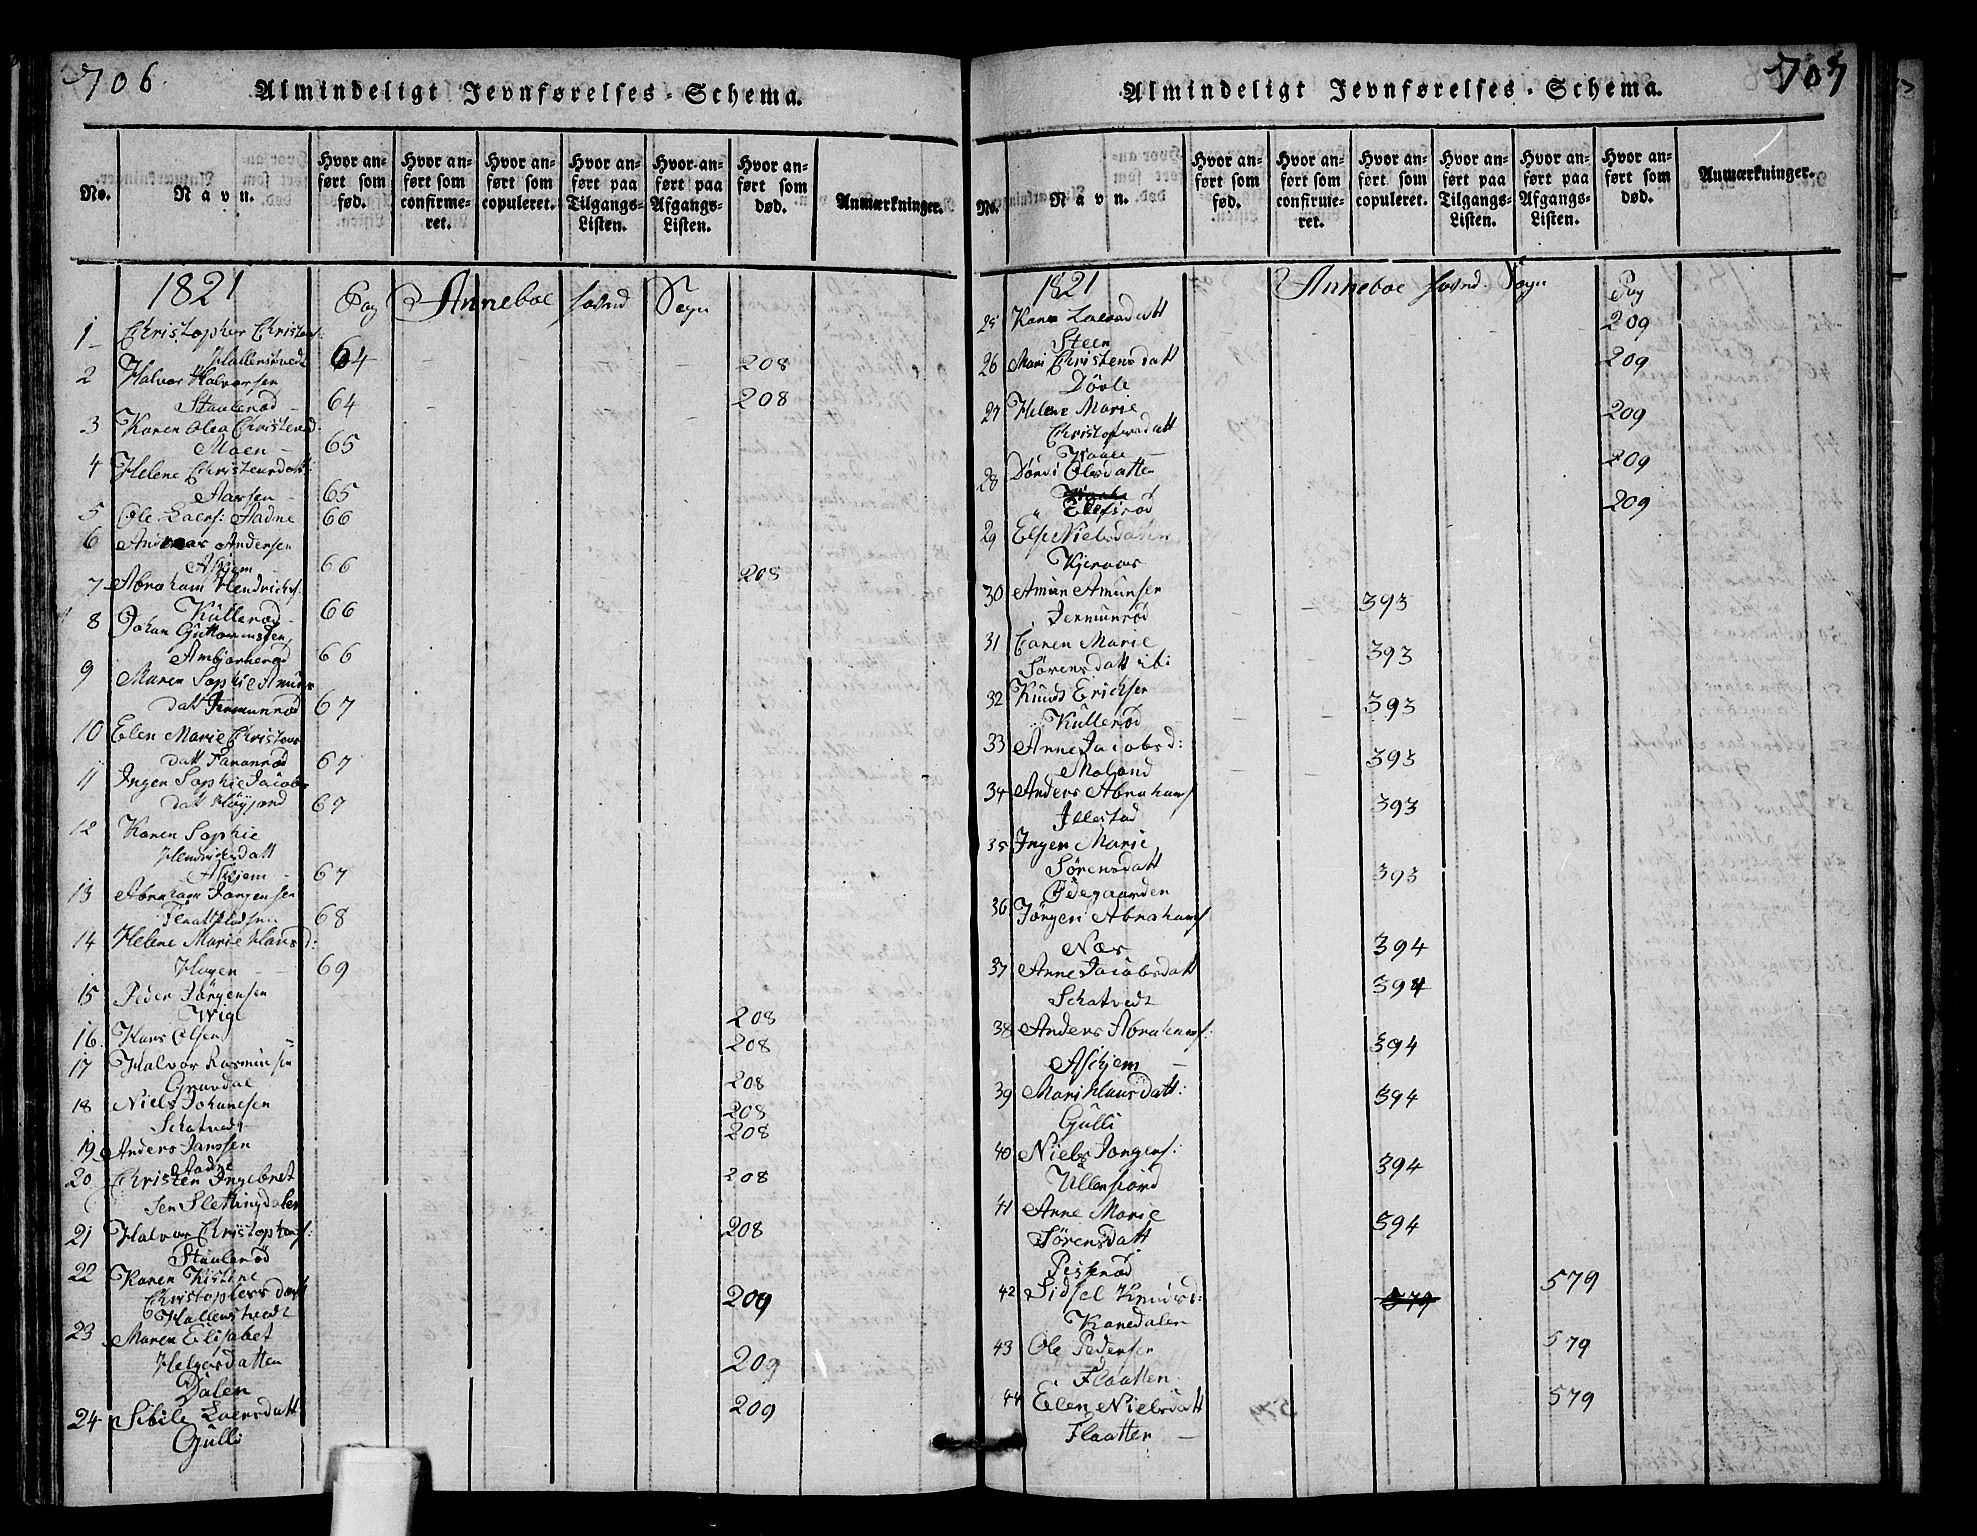 706
Almindeligt Jevnførelses-Schema.
No.
Navn.
Hvor anført som fød.
Hvor anført som confirmeret.
Hvor anført som copuleret.
Hvor anført paa Tilgangs-Listen.
Hvor anført paa Afgangs-Listen.
Hvor anført som død.
Anmærkninger.
1821 Pag Anneboe Sogn
1 Christopher Christens:
Hallenstvedt 64 208
2 Halvor Halvorsen
Staulerød 64 208
3 Karen Olea Christensd:
Moen 65
4 Helene Christensdatt:
Aassen 65
5 Ole Laers: Aadne 66
6 Andreas Andersen
Askjem 66 208
7 Abraham Hendrichs.
Kullerød 66
8 Johan Guttormsen
Ambjørherød 66
9 Maren Sophie Amunds
datt Jermunrød 67
10 Elen Marie Christens
datt Faranrød 67
11 Ingen Sophie Jacobs
datt Høyjord 67
12 Karen Sophie
Hendrichsdatt
Askjem 67
13 Abraham Jørgensen
Flaattpladsen 68
14 Helene Marie Hansd:
Hagen 69
15 Peder Jørgensen
Wige 208
16 Hans Olsen 208
17 Halvor Rasmusen
Gravdal 208
18 Niels Johanesen 208
Schatvedt 208
19 Anders Janssen
Aadne
20 Christen Ingebret 208
sen Slettingdalen
21 Halvor Christophers: 208
Staulerød
22 Karen Kistine
Christophersdatt 209
Hallenstvedt
23 Maren Elisabet
Helgersdatten 209
Dalen
24 Sibile Laersdatt 209
Gulli
707
Almindeligt Jevnførelses-Schema.
No.
Navn.
Hvor anført som fød.
Hvor anført som confirmeret.
Hvor anført som copuleret.
Hvor anført paa Tilgangs-Listen.
Hvor anført paa Afgangs-Listen.
Hvor anført som død.
Anmærkninger.
1821 Anneboe Sogn Pag
25 Karen Laersdatt 209
Steen
26 Mari Christensdatt 209
Døvle
27 Helene Marie 209
Christophersdatt
28 Dørdi Olesdatten 209
Elefsrød 209
29 Else Nielsdatten
Kjeraas
30 Amun Amunsen 393
Jermunrød
31 Caren Marie 393
Sørensdatt
32 Knud Erichsen 393
Kullerød
33 Anne Jacobsd: 393
Moland
34 Anders Abrahams 393
Illestad
35 Ingen Marie
Sørensdatt 393
Ødegaarden
36 Jørgen Abrahams
Nær 394
37 Anne Jacobsdatt 394
Schatvedt
38 Anders Abrahams: 394
Askjem
39 Mari Hansdatt: 394
Gulli
40 Niels Jørgens: 394
Ullensiord
41 Anne Marie 394
Sørensdatt
Pisserød
42 Sidsel Knudsd: 579 579
Kanedalen
43 Ole Pedersen 579
Flaatten
44 Elen Nielsdatt 579
Flaatten